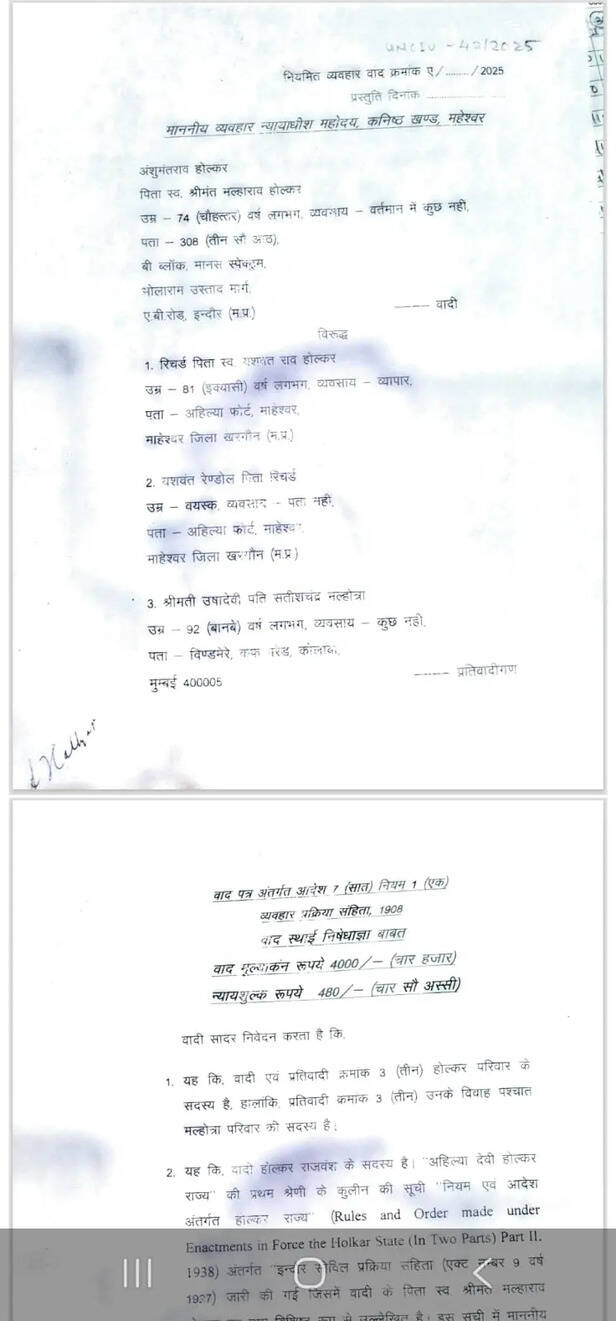 UNCIV - 42/2025
नियमित व्यवहार वाद क्रमांक ए/......../2025
प्रस्तुति दिनांक ........................
माननीय व्यवहार न्यायाधीश महोदय, कनिष्ठ खण्ड, महेश्वर
अंशुमंतराव होल्कर
पिता स्व. श्रीमंत मल्हाराव होल्कर
उम्र – 74 (चौहत्तर) वर्ष लगभग, व्यवसाय – वर्तमान में कुछ नहीं,
पता – 308 (तीन सौ आठ),
बी ब्लॉक, मानस स्पेक्ट्रम,
भोलाराम उस्ताद मार्ग,
ए.बी.रोड, इन्दौर (म.प्र.) ——— वादी
विरूद्ध
1. रिचर्ड पिता स्व. यशवंत राव होल्कर
उम्र – 81 (इक्यासी) वर्ष लगभग, व्यवसाय – व्यापार,
पता – अहिल्या फोर्ट, माहेश्वर,
माहेश्वर जिला खरगौन (म.प्र.)
2. यशवंत रेण्डोल पिता रिचर्ड
उम्र – वयस्क, व्यवसाय – पता नहीं,
पता – अहिल्या फोर्ट, माहेश्वर
माहेश्वर जिला खरगौन (म.प्र.)
3. श्रीमती उषादेवी पति सतीशचंद्र मल्होत्रा
उम्र – 92 (बानबे) वर्ष लगभग, व्यवसाय – कुछ नहीं,
पता – विण्डमेरे, कफ परेड, कोलाबा,
मुम्बई 400005 ——— प्रतिवादीगण
वाद पत्र अंतर्गत आदेश 7 (सात) नियम 1 (एक)
व्यवहार प्रक्रिया संहिता, 1908
वाद स्थाई निषेधाज्ञा बाबत
वाद मूल्यांकन रूपये 4000/– (चार हजार)
न्यायशुल्क रूपये 480/– (चार सौ अस्सी)
वादी सादर निवेदन करता है कि,
1. यह कि, वादी एवं प्रतिवादी क्रमांक 3 (तीन) होल्कर परिवार के
सदस्य है, हालांकि, प्रतिवादी क्रमांक 3 (तीन) उनके विवाह पश्चात
मल्होत्रा परिवार की सदस्य है।
2. यह कि, वादी होल्कर राजवंश के सदस्य है। "अहिल्या देवी होल्कर
राज्य" की प्रथम श्रेणी के कुलीन की सूची "नियम एवं आदेश
अंतर्गत होल्कर राज्य" (Rules and Order made under
Enactments in Force the Holkar State (In Two Parts) Part II.
1938) अंतर्गत "इन्दौर सिविल प्रक्रिया संहिता (एक्ट नम्बर 9 वर्ष
1927) जारी की गई जिसमें वादी के पिता स्व. श्रीमंत मल्हाराव
से उल्लेखित है। इस सूची में माननीय